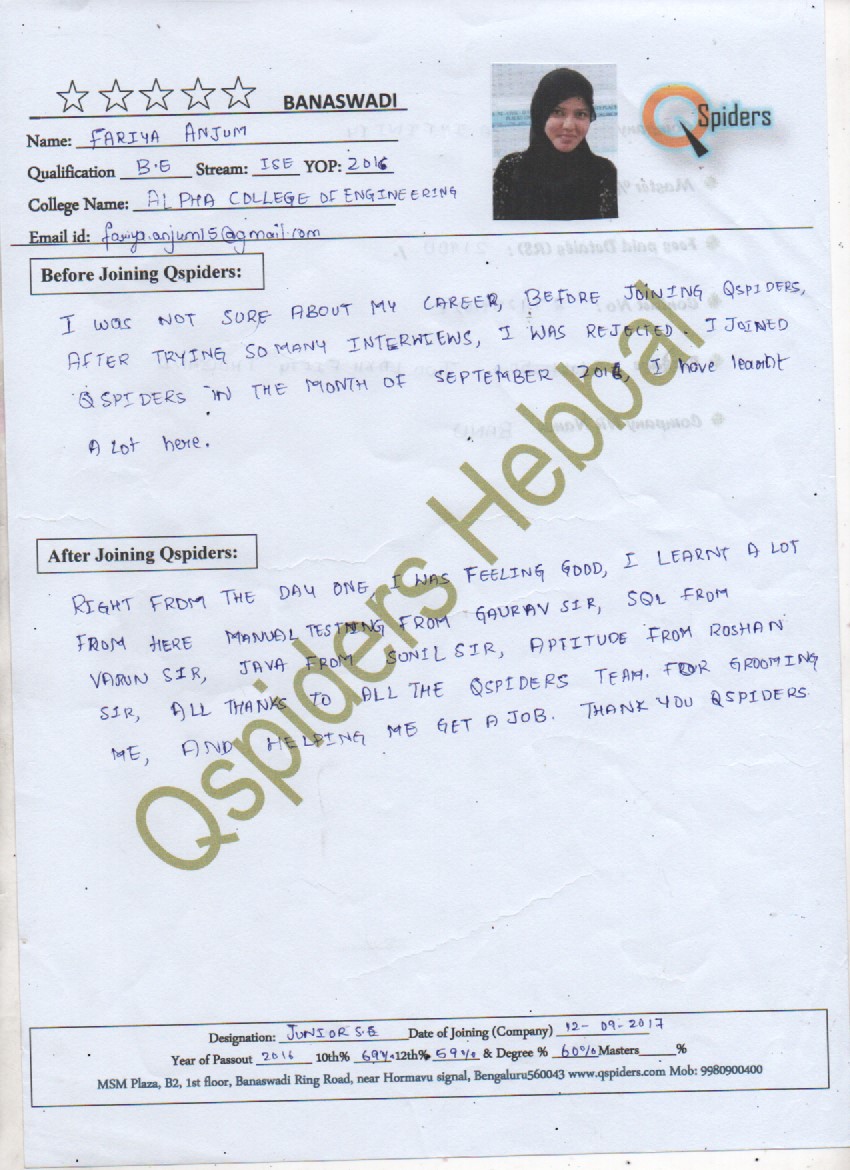 BANASWADI
Spiders
Name: FARIYA ANJUM
Qualification B.E Stream: ISE YOP: 2016
College Name: ALPHA COLLEGE OF ENGINEERING
Email id: fariya.anjum15@gmail.com
Before Joining Qspiders:
I WAS NOT SURE ABOUT MY CAREER, BEFORE JOINING QSPIDERS,
AFTER TRYING SO MANY INTERVIEWS, I WAS REJECTED. I JOINED
QSPIDERS IN THE MONTH OF SEPTEMBER 2016, I have learnt
A lot here.
After Joining Qspiders:
RIGHT FROM THE DAY ONE, I WAS FEELING GOOD, I LEARNT A LOT
FROM HERE MANUAL TESTING FROM GAURAV SIR, SQL FROM
VARUN SIR, JAVA FROM SUNIL SIR, APTITUDE FROM ROSHAN
SIR, ALL THANKS TO ALL THE QSPIDERS TEAM. FOR GROOMING
ME, AND HELPING ME GET A JOB. THANK YOU QSPIDERS.
Qspiders Hebbal
Designation: JUNIOR S.E Date of Joining (Company) 12-09-2017
Year of Passout 2016 10th% 69%.12th% 59% & Degree % 60% Masters____%
MSM Plaza, B2, 1st floor, Banaswadi Ring Road, near Hormavu signal, Bengaluru560043 www.qspiders.com Mob: 9980900400